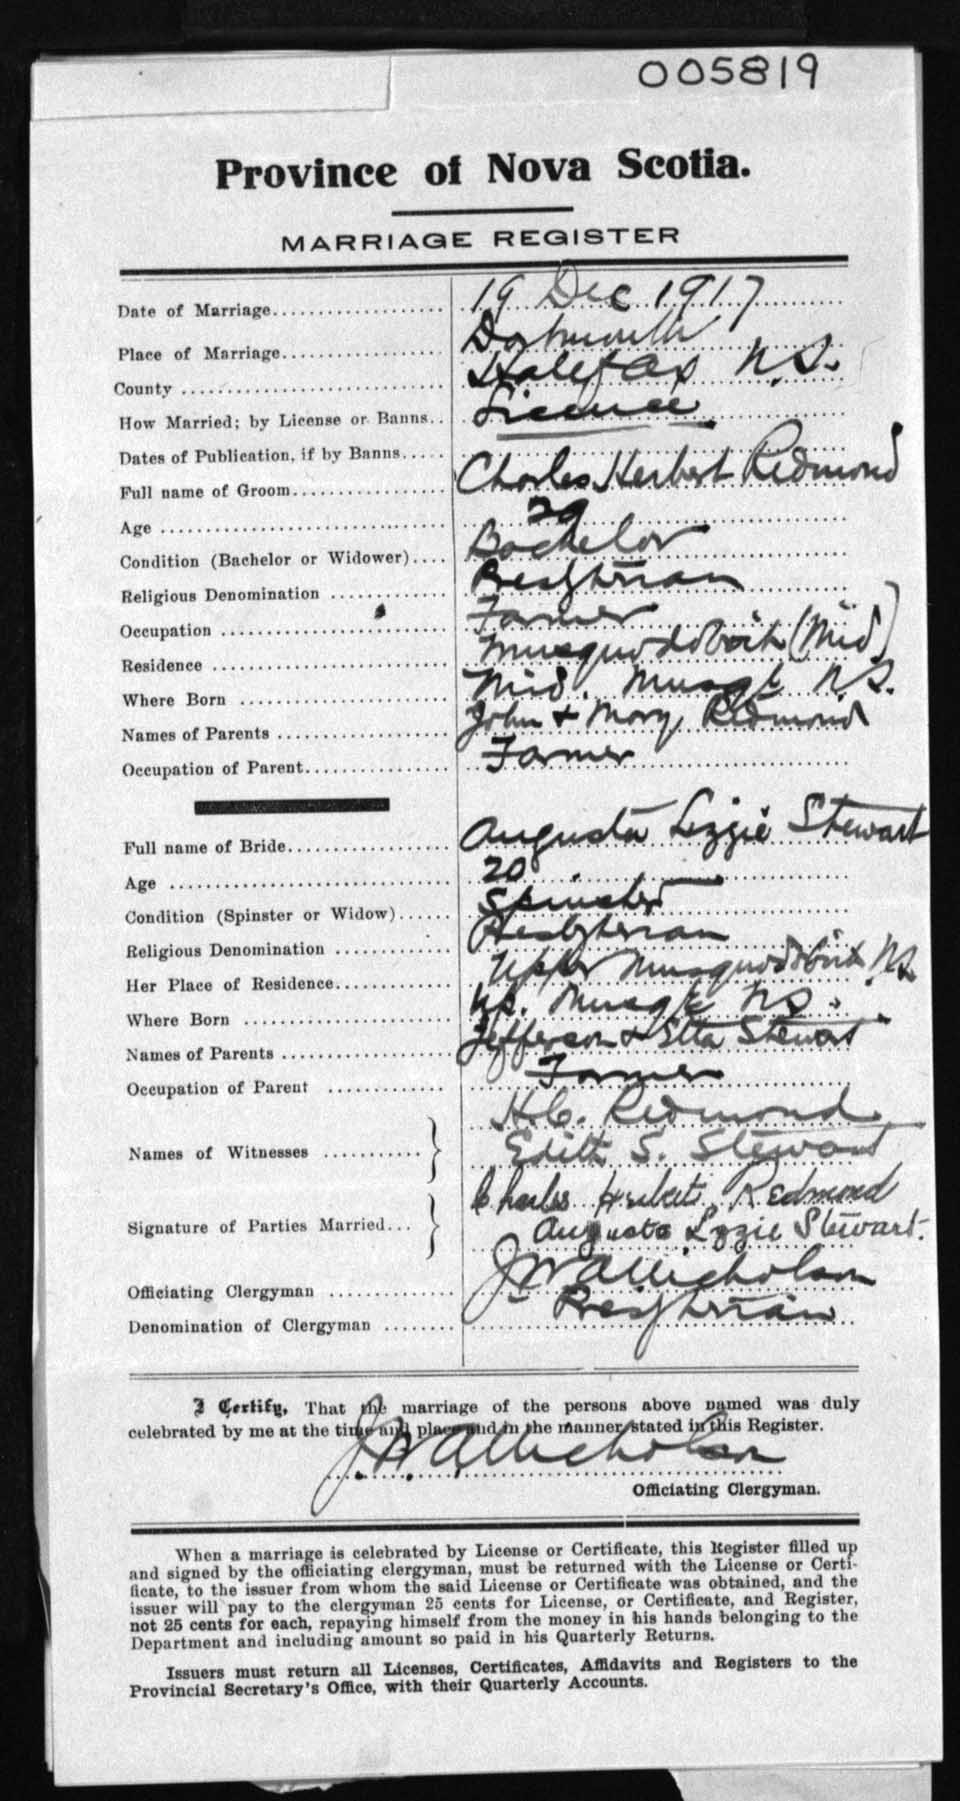 005819
Province of Nova Scotia.
MARRIAGE REGISTER
Date of Marriage................... 19 Dec 1917
Place of Marriage................. Dartmouth
County ........................... Halifax N.S.
How Married; by License or Banns.. Licence
Dates of Publication, if by Banns.....
Full name of Groom................ Charles Herbert Redmond
Age ............................. 29
Condition (Bachelor or Widower).... Bachelor
Religious Denomination ............ Presbyterian
Occupation ....................... Farmer
Residence ........................ Musquodoboit (Mid)
Where Born ..................... Mid. Musqt N.S.
Names of Parents ................. John & Mary Redmond
Occupation of Parent.............. Farmer
Full name of Bride................. Augusta Lizzie Stewart
Age ............................. 20
Condition (Spinster or Widow)...... Spinster
Religious Denomination ............ Presbyterian
Her Place of Residence............ Upper Musquodoboit NS
Where Born ..................... Up. Musqt NS.
Names of Parents ................. Jefferson & Etta Stewart
Occupation of Parent ............ Farmer
H.C. Redmond
Names of Witnesses ...........
Edith S. Stewart
Charles Herbert Redmond
Signature of Parties Married...
Augusta Lizzie Stewart.
Officiating Clergyman ............. J W A Nicholson
Denomination of Clergyman ........ Presbyterian
I Certify, That the marriage of the persons above named was duly
celebrated by me at the time and place and in the manner stated in this Register.
J. W. A. Nicholson
Officiating Clergyman.
When a marriage is celebrated by License or Certificate, this Register filled up
and signed by the officiating clergyman, must be returned with the License or Certi-
ficate, to the issuer from whom the said License or Certificate was obtained, and the
issuer will pay to the clergyman 25 cents for License, or Certificate, and Register,
not 25 cents for each, repaying himself from the money in his hands belonging to the
Department and including amount so paid in his Quarterly Returns.
Issuers must return all Licenses, Certificates, Affidavits and Registers to the
Provincial Secretary's Office, with their Quarterly Accounts.